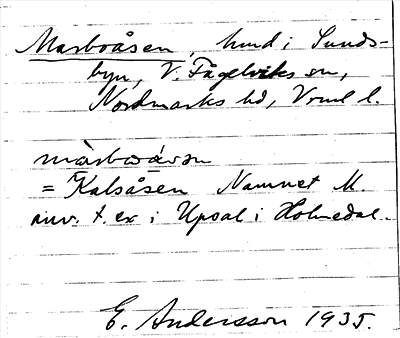 Marboåsen, hmd i Sunds-
byn, V. Fågelviks sn,
Nordmarks hd, Vrml l.
màrbωåsn
= Kalsåsen Namnet M.
anv. t. ex i Upsal i Holmedal.
E. Andersson 1935.